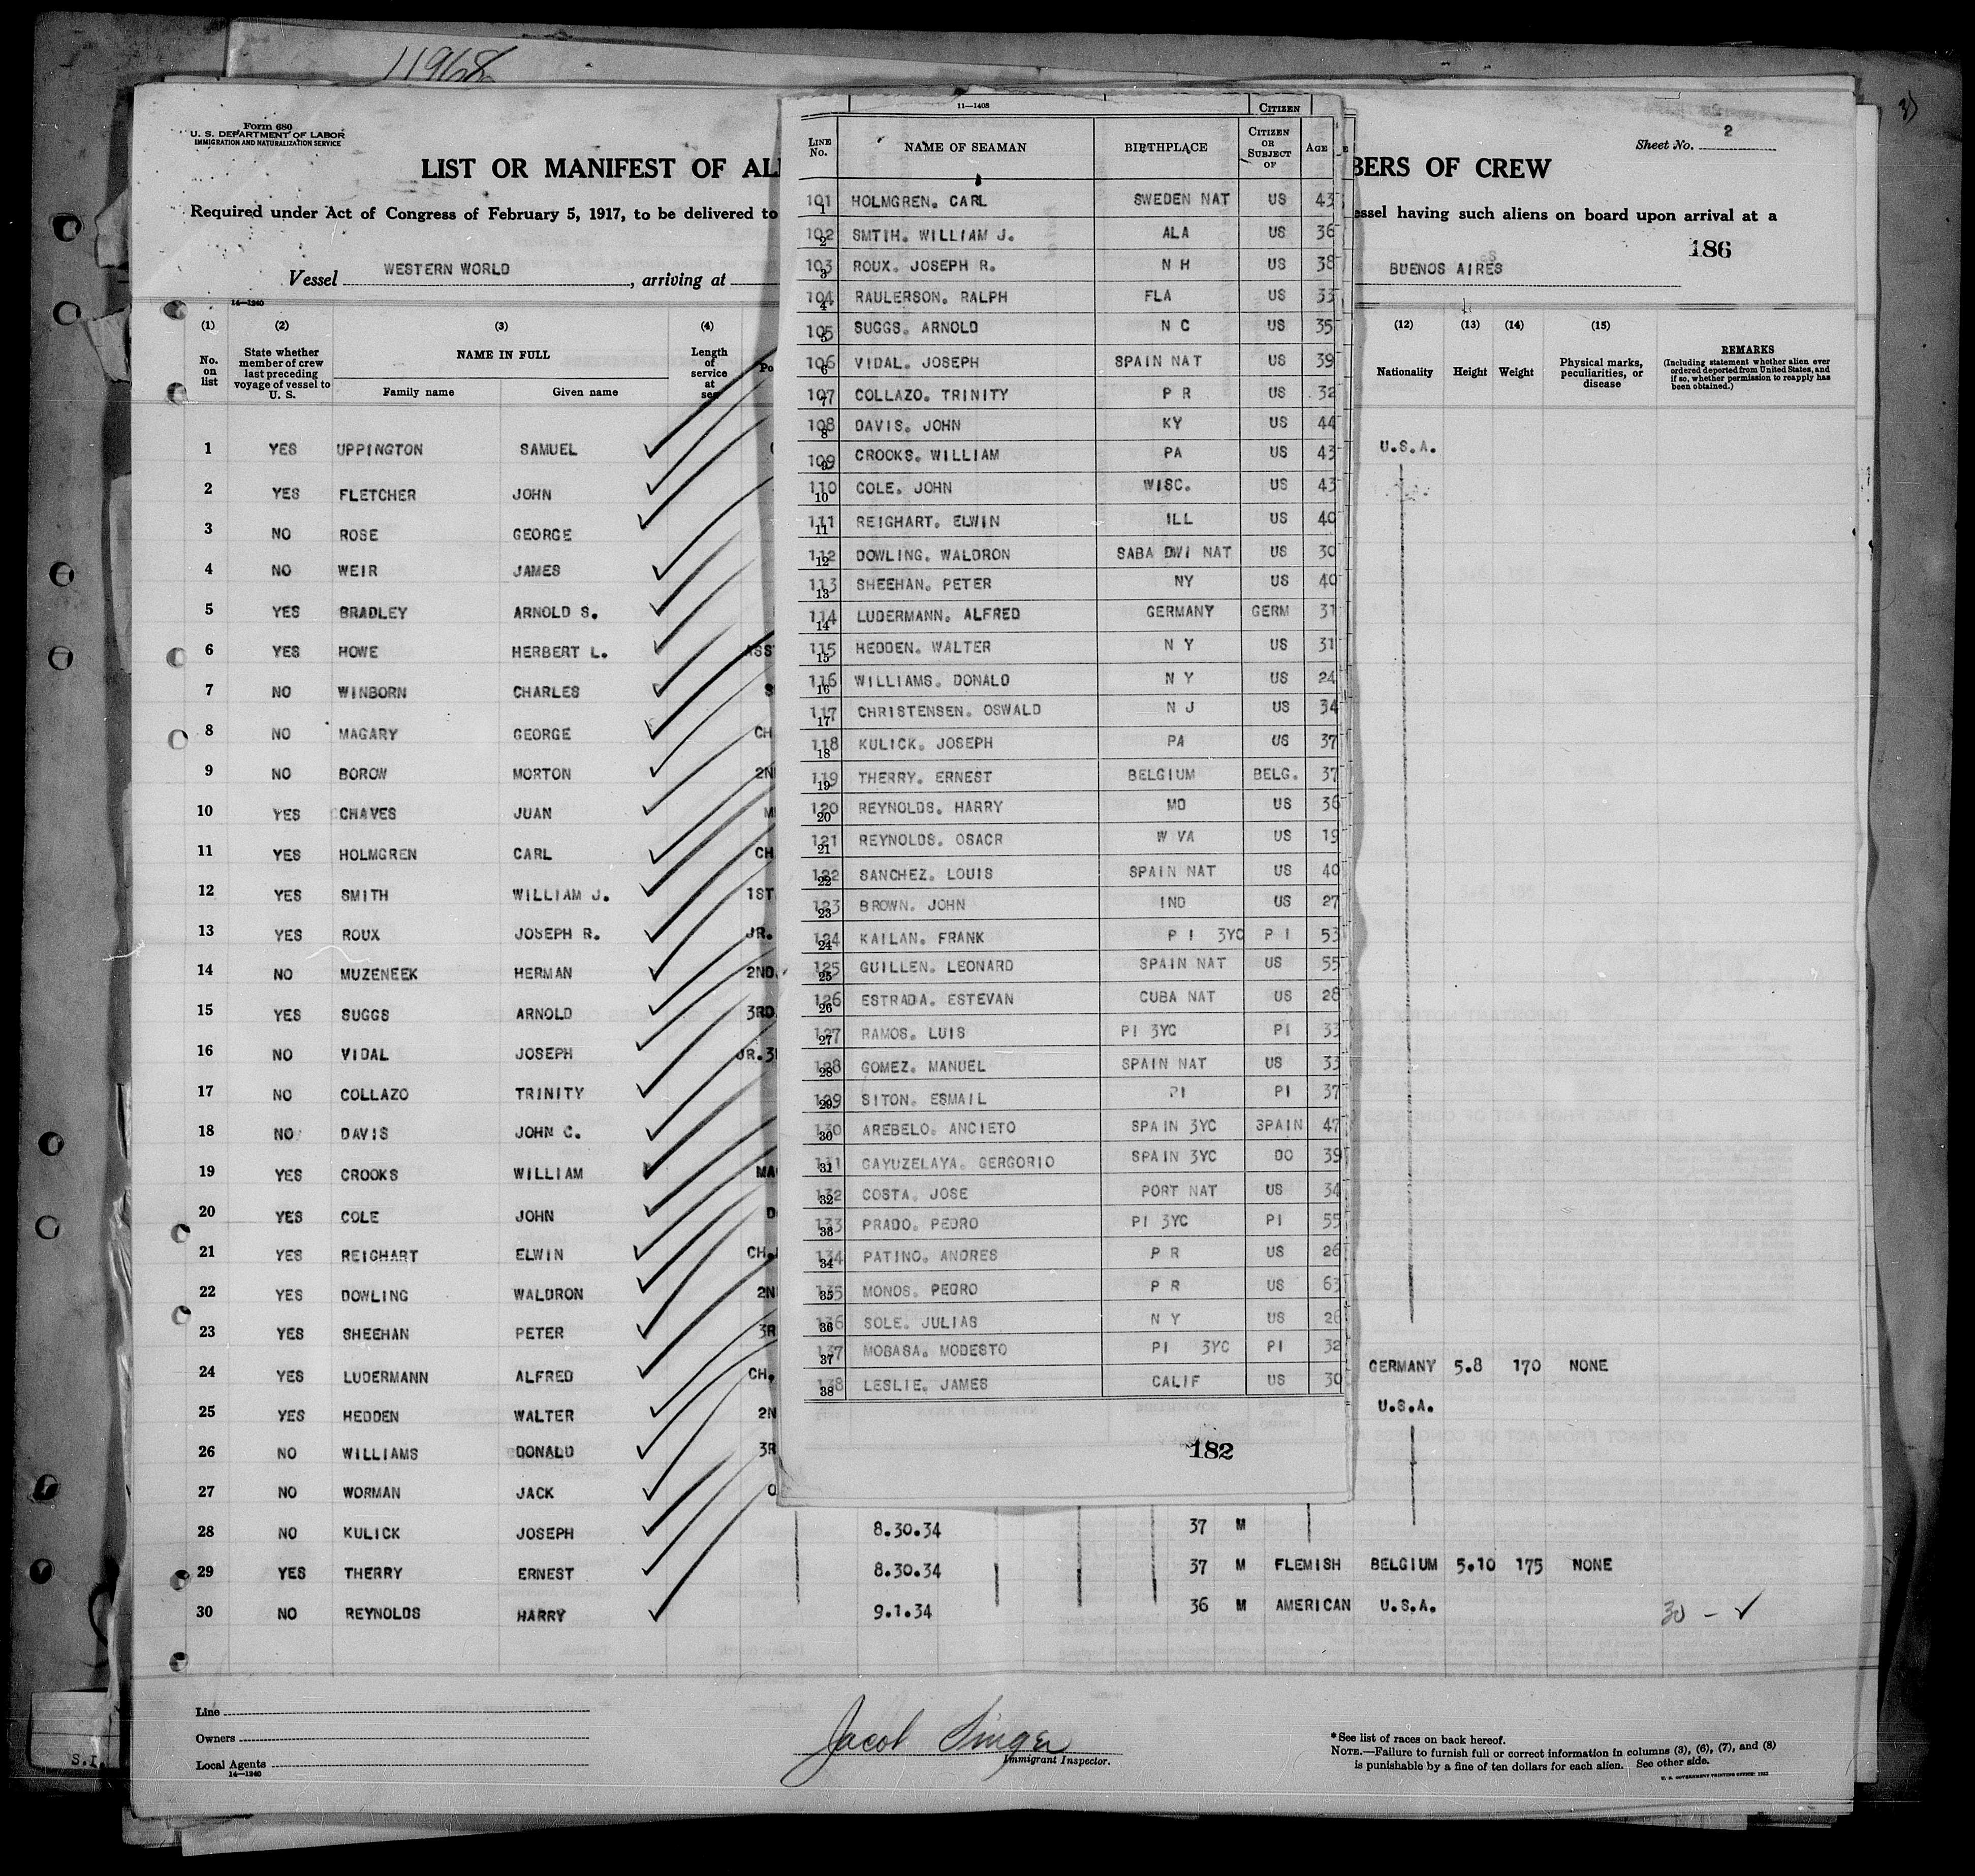 11968
Form 680
U. S. DEPARTMENT OF LABOR
IMMIGRATION AND NATURALIZATION SERVICE
Sheet No. 2
LIST OR MANIFEST OF AL
BERS OF CREW
Required under Act of Congress of February 5, 1917, to be delivered to
essel having such aliens on board upon arrival at a
186
Vessel WESTERN WORLD, arriving at
BUENOS AIRES
14—1240
(1) (2) (3) (4) (12) (13) (14) (15)
No. on list
State whether member of crew last preceding voyage of vessel to U. S.
NAME IN FULL
Family name Given name
Length of service at sea
Po
Nationality Height Weight
Physical marks, peculiarities, or disease
REMARKS
(Including statement whether alien ever ordered deported from United States, and if so, whether permission to reapply has been obtained.)
1 YES UPPINGTON SAMUEL U.S.A.
2 YES FLETCHER JOHN
3 NO ROSE GEORGE
4 NO WEIR JAMES
5 YES BRADLEY ARNOLD S.
6 YES HOWE HERBERT L. ASS
7 NO WINBORN CHARLES S
8 NO MAGARY GEORGE CH
9 NO BOROW MORTON 2N
10 YES CHAVES JUAN M
11 YES HOLMGREN CARL CH
12 YES SMITH WILLIAM J. 1ST
13 YES ROUX JOSEPH R. JR.
14 NO MUZENEEK HERMAN 2ND
15 YES SUGGS ARNOLD 3RD
16 NO VIDAL JOSEPH JR.3
17 NO COLLAZO TRINITY
18 NO DAVIS JOHN C.
19 YES CROOKS WILLIAM MA
20 YES COLE JOHN D
21 YES REIGHART ELWIN CH.
22 YES DOWLING WALDRON 2N
23 YES SHEEHAN PETER 3R
24 YES LUDERMANN ALFRED CH. GERMANY 5.8 170 NONE
25 YES HEDDEN WALTER 2N U.S.A.
26 NO WILLIAMS DONALD 3R
27 NO WORMAN JACK O
28 NO KULICK JOSEPH 8.30.34 37 M
29 YES THERRY ERNEST 8.30.34 37 M FLEMISH BELGIUM 5.10 175 NONE
30 NO REYNOLDS HARRY 9.1.34 36 M AMERICAN U.S.A. 30 - ✓
11—1408
CITIZEN
LINE No. NAME OF SEAMAN BIRTHPLACE CITIZEN OR SUBJECT OF AGE
101 1 HOLMGREN. CARL SWEDEN NAT US 43
102 2 SMTIH. WILLIAM J. ALA US 36
103 3 ROUX. JOSEPH R. N H US 38
104 4 RAULERSON. RALPH FLA US 33
105 5 SUGGS. ARNOLD N C US 35
106 6 VIDAL. JOSEPH SPAIN NAT US 39
107 7 COLLAZO. TRINITY P R US 32
108 8 DAVIS. JOHN KY US 44
109 9 CROOKS. WILLIAM PA US 43
110 10 COLE. JOHN WISC. US 43
111 11 REIGHART. ELWIN ILL US 40
112 12 DOWLING. WALDRON SABA DWI NAT US 30
113 13 SHEEHAN. PETER NY US 40
114 14 LUDERMANN. ALFRED GERMANY GERM 31
115 15 HEDDEN. WALTER N Y US 31
116 16 WILLIAMS. DONALD N Y US 24
117 17 CHRISTENSEN. OSWALD N J US 34
118 18 KULICK. JOSEPH PA US 37
119 19 THERRY. ERNEST BELGIUM BELG. 37
120 20 REYNOLDS. HARRY MD US 36
121 21 REYNOLDS. OSACR W VA US 19
122 22 SANCHEZ. LOUIS SPAIN NAT US 40
123 23 BROWN. JOHN IND US 27
124 24 KAILAN. FRANK P I 3YC P I 53
125 25 GUILLEN. LEONARD SPAIN NAT US 55
126 26 ESTRADA. ESTEVAN CUBA NAT US 28
127 27 RAMOS. LUIS PI 3YC PI 33
128 28 GOMEZ. MANUEL SPAIN NAT US 33
129 29 SITON. ESMAIL PI PI 37
130 30 AREBELO. ANCIETO SPAIN 3YC SPAIN 47
131 31 GAYUZELAYA. GERGORIO SPAIN 3YC DO 39
132 32 COSTA. JOSE PORT NAT US 34
133 33 PRADO. PEDRO PI 3YC PI 55
134 34 PATINO. ANDRES P R US 26
135 35 MONOS. PEDRO P R US 63
136 36 SOLE. JULIAS N Y US 26
137 37 MOBASA. MODESTO PI 3YC PI 32
138 38 LESLIE. JAMES CALIF US 30
182
Line
Owners
Local Agents
14—1240
Jacob Singer
Immigrant Inspector.
*See list of races on back hereof.
NOTE.—Failure to furnish full or correct information in columns (3), (6), (7), and (8)
is punishable by a fine of ten dollars for each alien. See other side.
U. S. GOVERNMENT PRINTING OFFICE:
S.I.